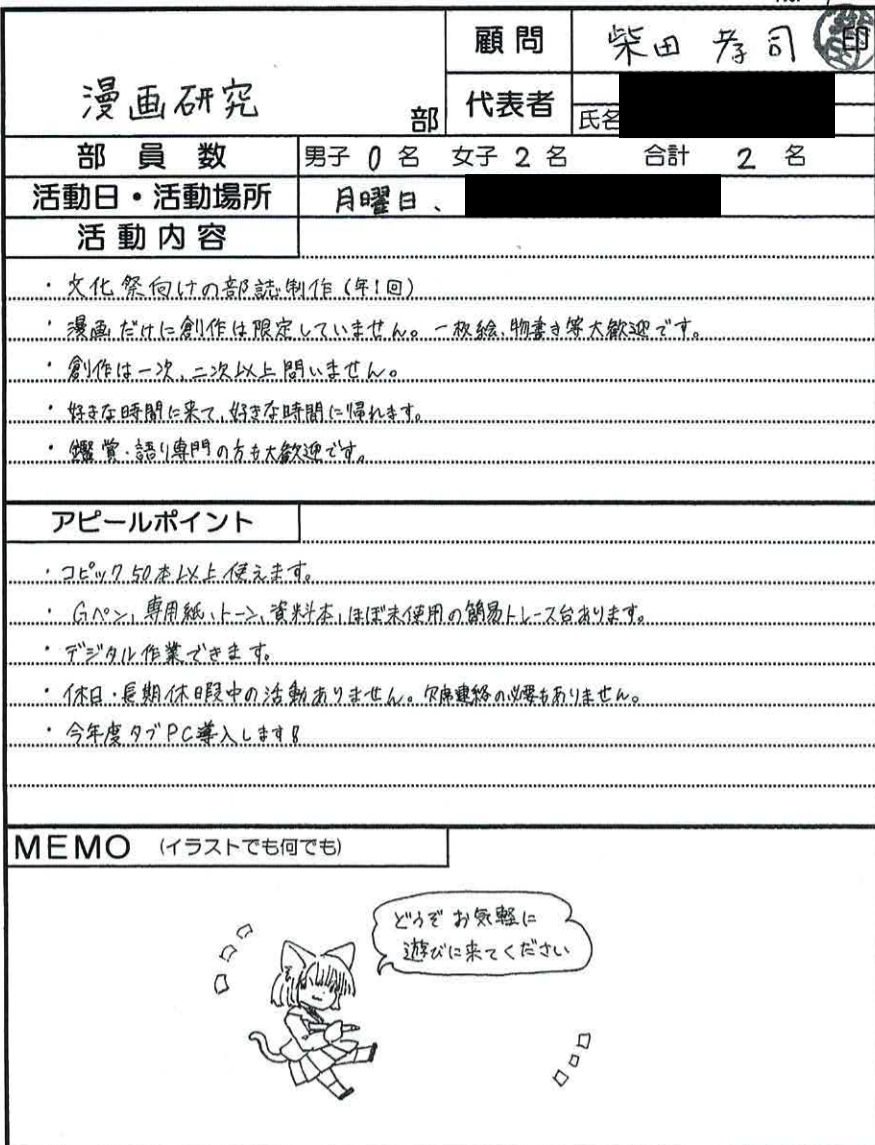 顧問 柴田 孝司 印
漫画研究 部
代表者 氏名
部員数 男子 0 名 女子 2 名 合計 2 名
活動日・活動場所 月曜日、
活動内容
・文化祭向けの部誌制作(年1回)
・漫画だけに創作は限定していません。一枚絵、物書き等大歓迎です。
・創作は一次、二次以上問いません。
・好きな時間に来て、好きな時間に帰れます。
・鑑賞・語り専門の方も大歓迎です。
アピールポイント
・コピック50本以上使えます。
・Gペン、専用紙、トーン、資料本、ほぼ未使用の簡易トレース台あります。
・デジタル作業できます。
・休日・長期休暇中の活動ありません。欠席連絡の必要もありません。
・今年度タブPC導入します!
MEMO (イラストでも何でも)
どうぞお気軽に
遊びに来てください